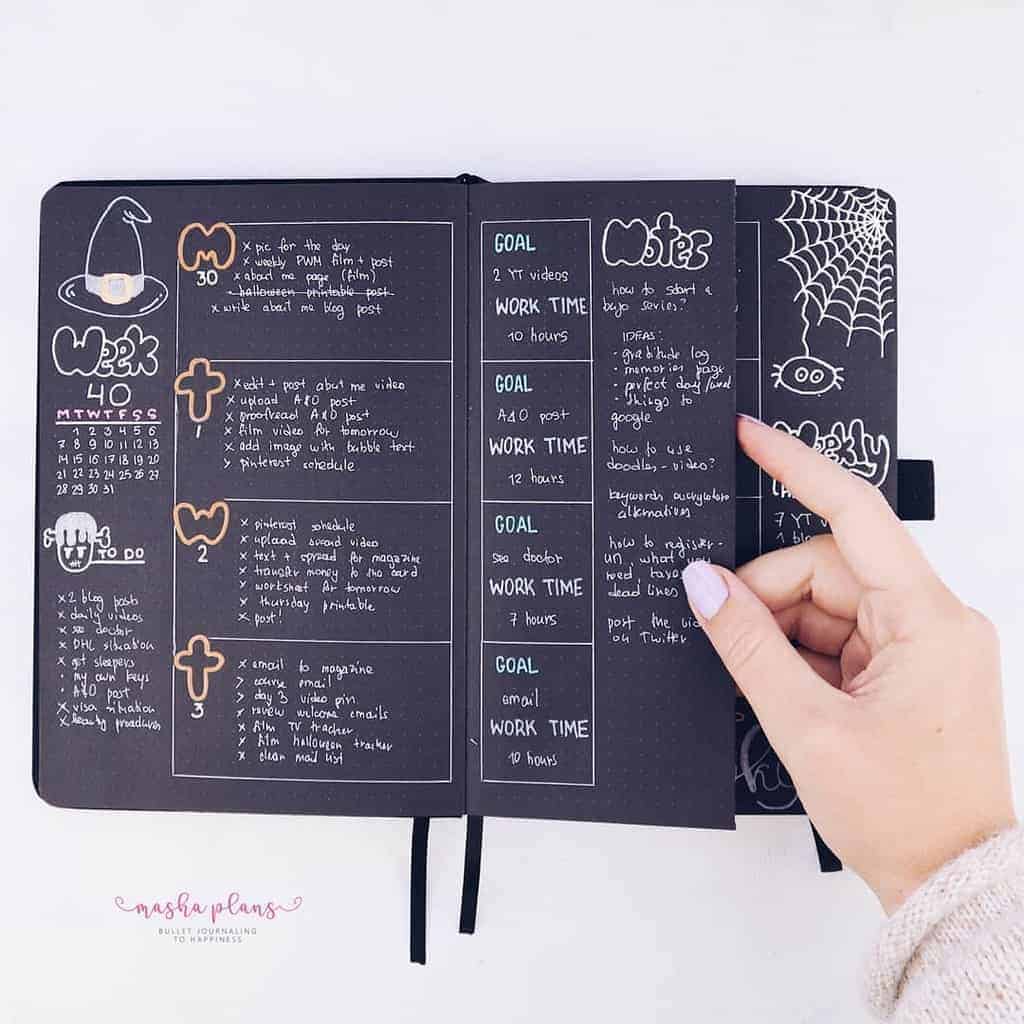 Week
40
M T W T F S S
1 2 3 4 5 6
7 8 9 10 11 12 13
14 15 16 17 18 19 20
21 22 23 24 25 26 27
28 29 30 31
TO DO
x 2 blog posts
x daily videos
x see doctor
x DHL situation
x get sleepers
• my own keys
• A&O post
x visa situation
x beauty procedures
M
30
x pic for the day
x weekly PWM film + post
x about me page (film)
- halloween printable post
x write about me blog post
T
1
x edit + post about me video
x upload A&O post
x proofread A&O post
x film video for tomorrow
x add image with bubble text
> pinterest schedule
W
2
x pinterest schedule
x upload spread video
x text + spread for magazine
x transfer money to the card
x worksheet for tomorrow
x thursday printable
x post!
T
3
x email to magazine
> course email
> day 3 video pin
x review welcome emails
x film TV tracker
x film halloween tracker
x clean mail list
GOAL
2 YT videos
WORK TIME
10 hours
GOAL
A&O post
WORK TIME
12 hours
GOAL
see doctor
WORK TIME
7 hours
GOAL
email
WORK TIME
10 hours
Notes
how to start a
bujo series?
IDEAS:
• gratitude log
• memories page
• perfect day
• things to
google
how to use
doodles - video?
keywords
alternatives
how to register -
un, what you
need,
dead lines
post the
on Twitter
Weekly
7 YT
masha plans
BULLET JOURNALING
TO HAPPINESS